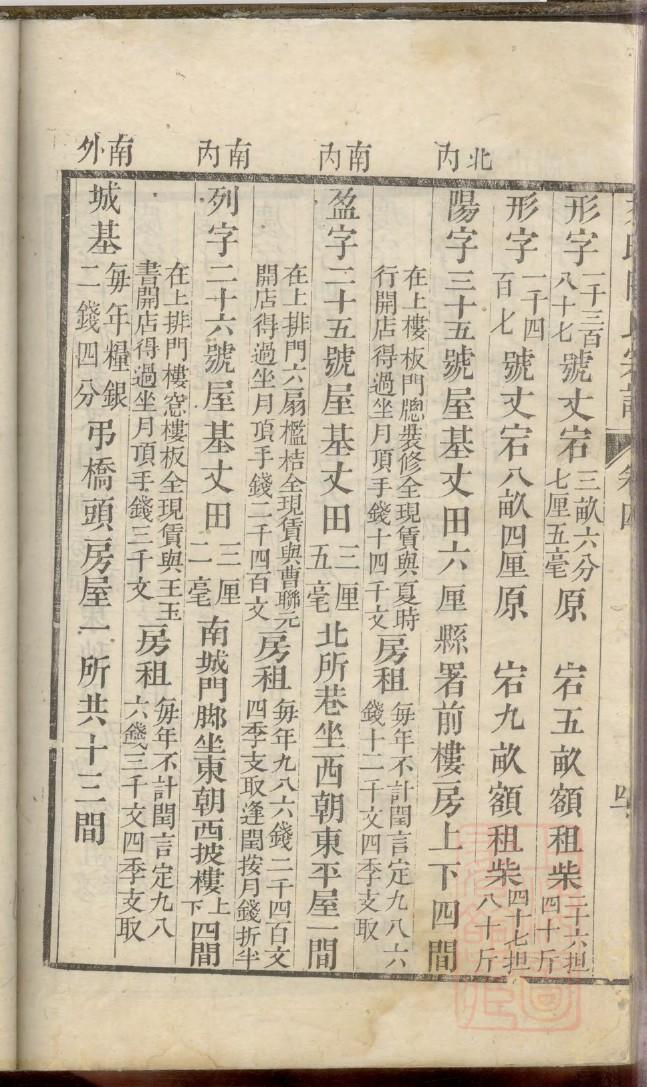 形字一千三百八十七號丈宕三畝六分七厘五毫原　宕五畝額租柴二十六担四十斤
形字一千四百七號丈宕八畝四厘原　宕九畝額租柴四十七担八十斤
北内
陽字三十五號屋基丈田六厘縣署前樓房上下四間
在上樓板門牕裝修全現賃與夏時行開店得過坐月頂手錢十四千文房租每年不計閏言定九八六錢十二千文四季支取
南内
盈字二十五號屋基丈田三厘五毫北所巷坐西朝東平屋一間
在上排門六扇檻桔全現賃與曹聯元開店得過坐月頂手錢二千四百文房租每年九八六錢二千四百文四季支取逢閏按月錢折半
南内
列字二十六號屋基丈田三厘二毫南城門脚坐東朝西披樓上下四間
在上排門樓窓樓板全現賃與王玉書開店得過坐月頂手錢三千文房租每年不計閏言定九八六錢三千文四季支取
南外
城基每年糧銀二錢四分弔橋頭房屋一所共十三間